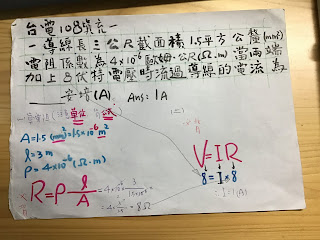 台電108填充一
一導線長三公尺截面積1.5平方公釐(mm²)
電阻係數為4×10⁻⁶歐姆-公尺(Ω.m)當兩端
加上8伏特電壓時流過導線的電流為
____安培(A) Ans:1A
A=1.5(mm²)=1.5×10⁻⁶m²
ℓ=3m
ρ=4×10⁻⁶(Ω.m)
R=ρℓ/A
=4×10⁻⁶ 3/1.5×10⁻⁶
=8Ω
(二)
V=IR
8=I×8
I=1(A)